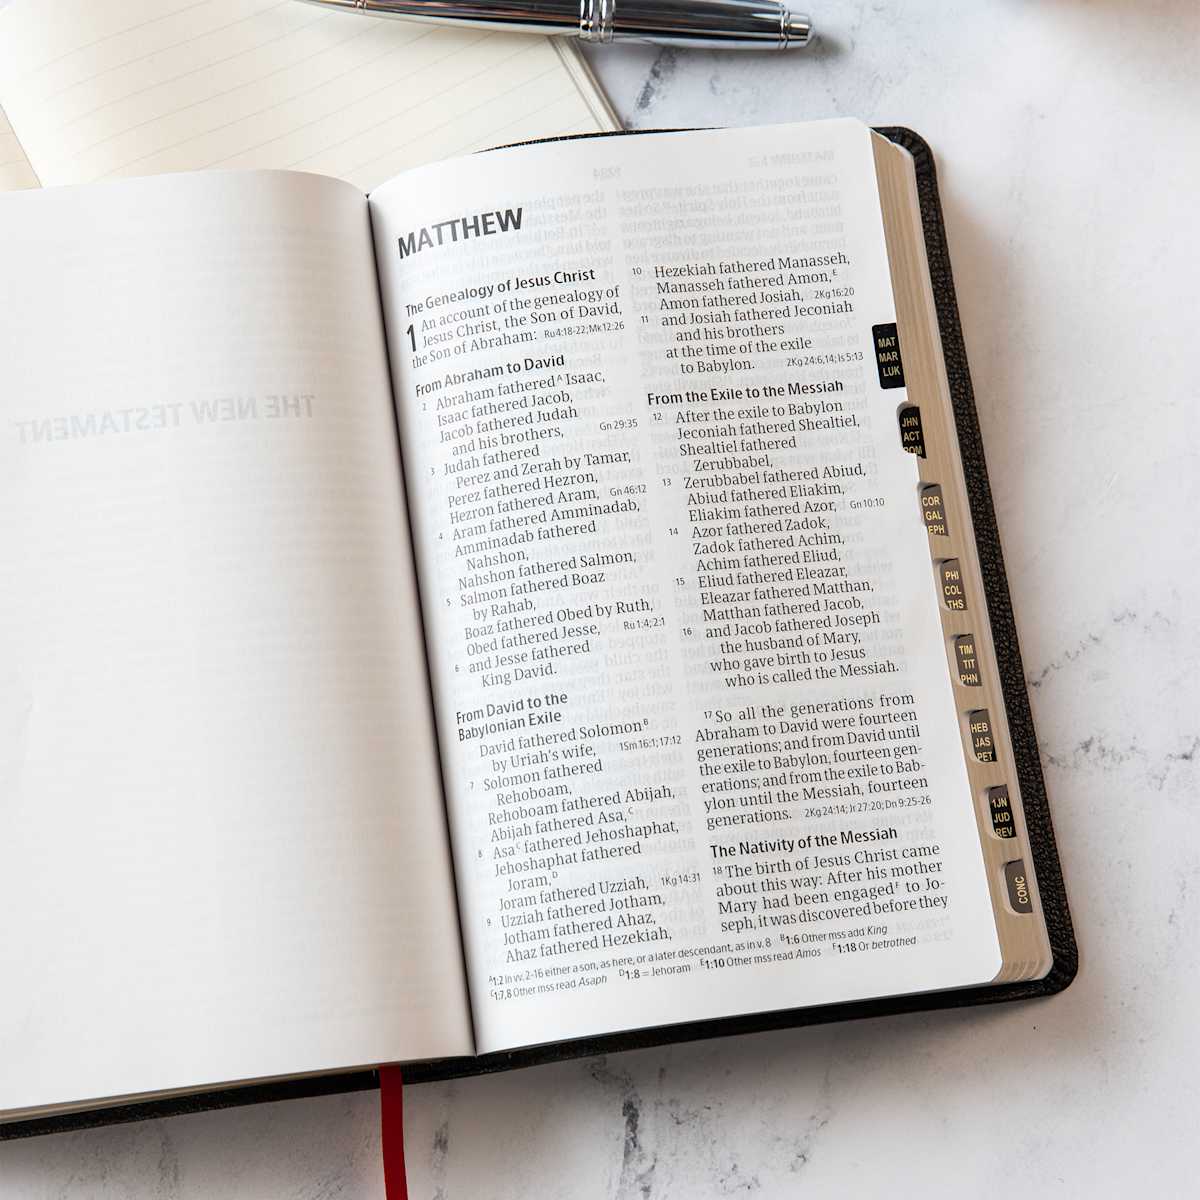 THE NEW TESTAMENT
MATTHEW
The Genealogy of Jesus Christ
1 An account of the genealogy of
Jesus Christ, the Son of David,
the Son of Abraham: Ru 4:18-22; Mk 12:26
From Abraham to David
2 Abraham fathered^A Isaac,
Isaac fathered Jacob,
Jacob fathered Judah
and his brothers, Gn 29:35
3 Judah fathered
Perez and Zerah by Tamar,
Perez fathered Hezron,
Hezron fathered Aram, Gn 46:12
4 Aram fathered Amminadab,
Amminadab fathered
Nahshon,
Nahshon fathered Salmon,
5 Salmon fathered Boaz
by Rahab,
Boaz fathered Obed by Ruth,
Obed fathered Jesse, Ru 1:4; 2:1
6 and Jesse fathered
King David.
From David to the
Babylonian Exile
David fathered Solomon^B
by Uriah's wife, 1Sm 16:1; 17:12
7 Solomon fathered
Rehoboam,
Rehoboam fathered Abijah,
Abijah fathered Asa,^C
8 Asa^C fathered Jehoshaphat,
Jehoshaphat fathered
Joram,^D
Joram fathered Uzziah, 1Kg 14:31
9 Uzziah fathered Jotham,
Jotham fathered Ahaz,
Ahaz fathered Hezekiah,
10 Hezekiah fathered Manasseh,
Manasseh fathered Amon,^E
Amon fathered Josiah, 2Kg 16:20
11 and Josiah fathered Jeconiah
and his brothers
at the time of the exile
to Babylon. 2Kg 24:6,14; Is 5:13
From the Exile to the Messiah
12 After the exile to Babylon
Jeconiah fathered Shealtiel,
Shealtiel fathered
Zerubbabel,
13 Zerubbabel fathered Abiud,
Abiud fathered Eliakim,
Eliakim fathered Azor, Gn 10:10
14 Azor fathered Zadok,
Zadok fathered Achim,
Achim fathered Eliud,
15 Eliud fathered Eleazar,
Eleazar fathered Matthan,
Matthan fathered Jacob,
16 and Jacob fathered Joseph
the husband of Mary,
who gave birth to Jesus
who is called the Messiah.
17 So all the generations from
Abraham to David were fourteen
generations; and from David until
the exile to Babylon, fourteen gen-
erations; and from the exile to Bab-
ylon until the Messiah, fourteen
generations. 2Kg 24:14; Jr 27:20; Dn 9:25-26
The Nativity of the Messiah
18 The birth of Jesus Christ came
about this way: After his mother
Mary had been engaged^F to Jo-
seph, it was discovered before they
^A1:2 In vv. 2-16 either a son, as here, or a later descendant, as in v. 8 ^B1:6 Other mss add King
^C1:7,8 Other mss read Asaph ^D1:8 = Jehoram ^E1:10 Other mss read Amos ^F1:18 Or betrothed
MAT
MAR
LUK
JHN
ACT
ROM
COR
GAL
EPH
PHI
COL
THS
TIM
TIT
PHN
HEB
JAS
PET
1JN
JUD
REV
CONC